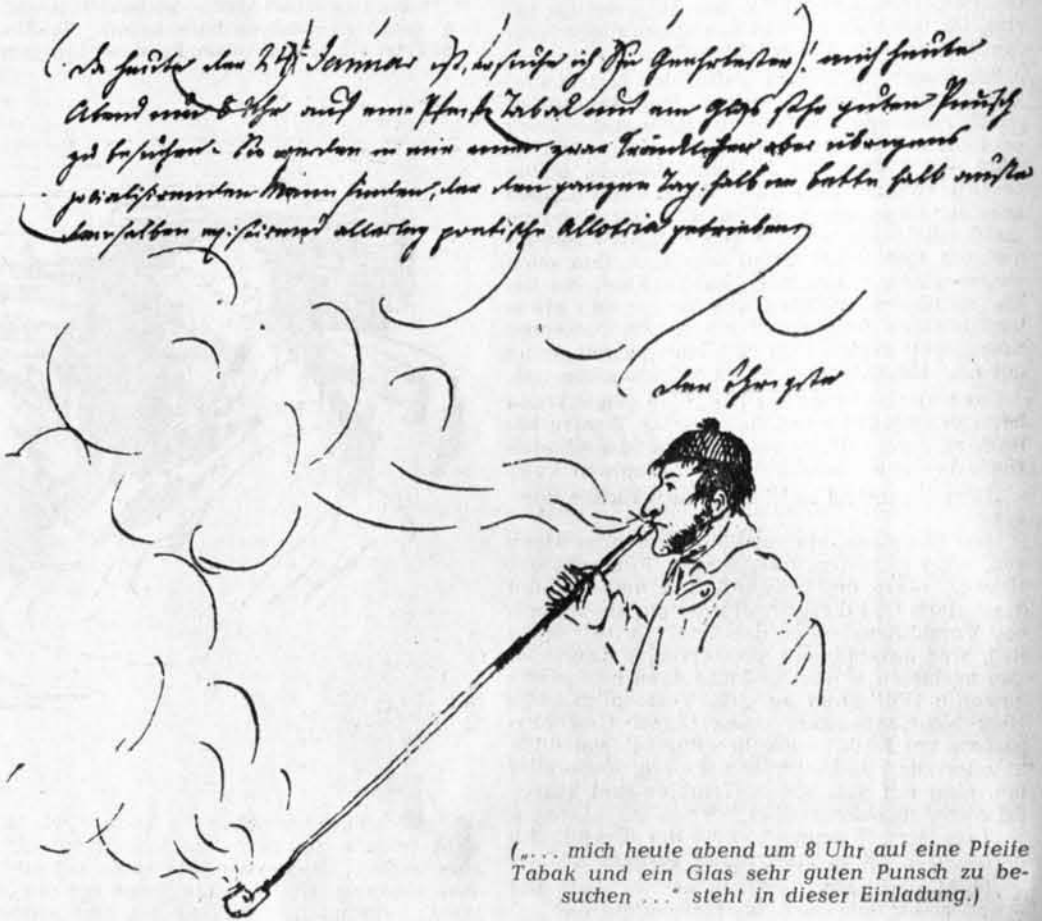 (Da heute der 24t Januar ist, ersuche ich Sie Geehrtester)! mich heute
Abend um 8 Uhr auf eine Pfeife Tabak und ein Glas sehr guten Punsch
zu besuchen. Sie werden in mir einen zwar kränklichen aber übrigens
jovialisirenden Mann finden, der den ganzen Tag, halb im Bette halb außer
demselben allerley poetische Allotria getrieben,
den Ihrigsten
(„... mich heute abend um 8 Uhr auf eine Pfeife
Tabak und ein Glas sehr guten Punsch zu be-
suchen ..." steht in dieser Einladung.)